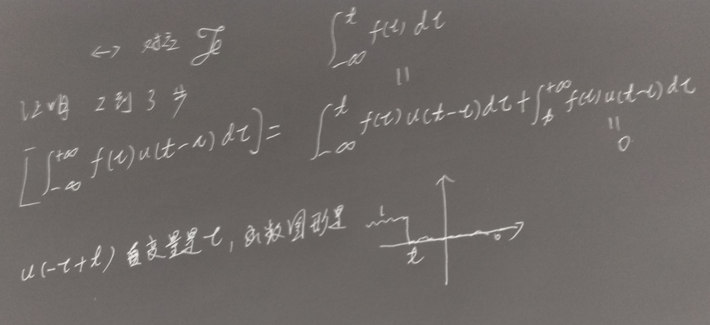 ↔ 对应 ℱ ∫_{-∞}^{t} f(τ) dτ
证明 2到3步 =
[∫_{-∞}^{+∞} f(τ)u(t-τ)dτ] = ∫_{-∞}^{t} f(τ)u(t-τ)dτ + ∫_{t}^{+∞} f(τ)u(t-τ)dτ
= 0
u(-τ+t) 自变量是τ, 函数图形是
1
t 0